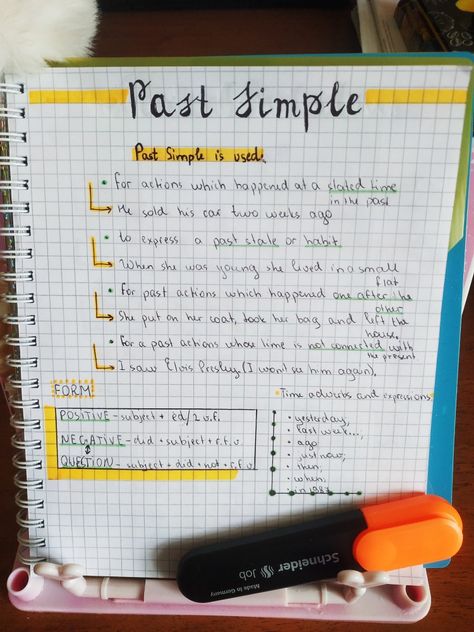 Past Simple
Past Simple is used:
• For actions which happened at a stated time
in the past
He sold his car two weeks ago
• to express a past state or habit
When she was young she lived in a small
flat
• For past actions which happened one after the
other
She put on her coat, took her bag and left the
house.
• for a past actions whose time is not connected with
the present
I saw Elvis Presley (I won't see him again).
FORM
POSITIVE - subject + ed/2 v.f.
NEGATIVE - did + subject + f.f.v
QUESTION - subject + did + not + f.f.v
• Time adverbs and expressions
• yesterday,
• last week...,
• ago
• just now,
• then,
• when,
• in 1987
Schneider Job
Made in Germany